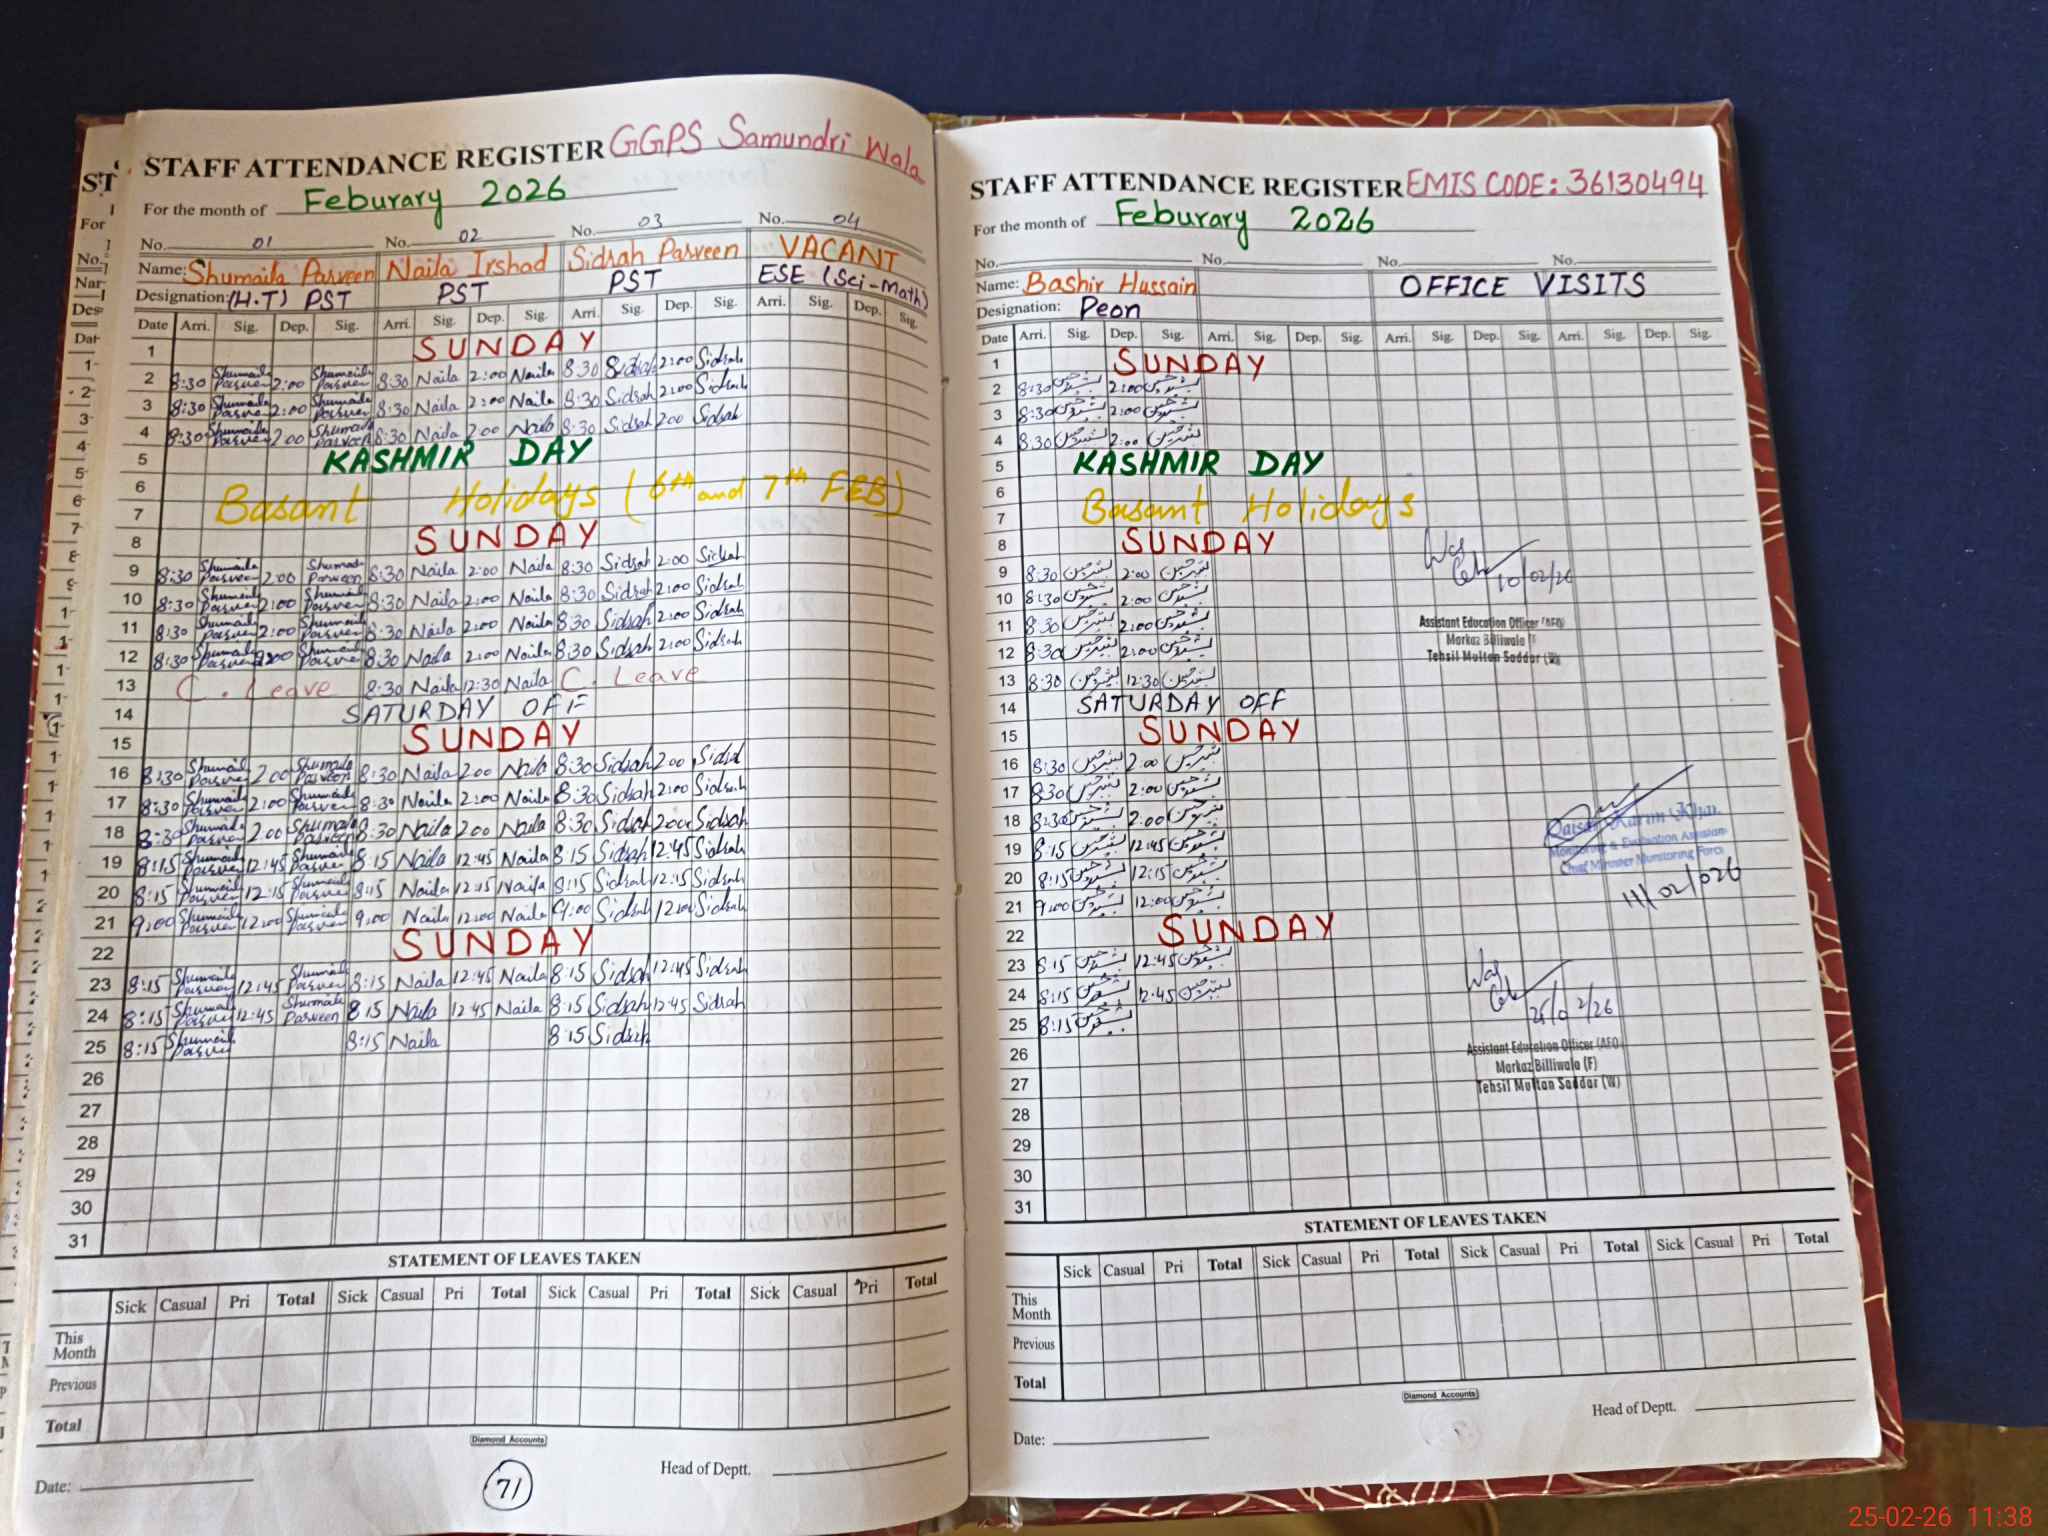 STAFF ATTENDANCE REGISTER GGPS Samundri Wala
For the month of Feburary 2026
No. 01 No. 02 No. 03 No. 04
Name: Shumaila Parveen Naila Irshad Sidrah Parveen VACANT
Designation: (H.T) PST PST PST ESE (Sci-Math)
Date Arri. Sig. Dep. Sig. Arri. Sig. Dep. Sig. Arri. Sig. Dep. Sig. Arri. Sig. Dep. Sig.
1 SUNDAY
2 8:30 Shumaila Parveen 2:00 Shumaila Parveen 8:30 Naila 2:00 Naila 8:30 Sidrah 2:00 Sidrah
3 8:30 Shumaila Parveen 2:00 Shumaila Parveen 8:30 Naila 2:00 Naila 8:30 Sidrah 2:00 Sidrah
4 8:30 Shumaila Parveen 2:00 Shumaila Parveen 8:30 Naila 2:00 Naila 8:30 Sidrah 2:00 Sidrah
5 KASHMIR DAY
6
7 Basant Holidays (6th and 7th FEB)
8 SUNDAY
9 8:30 Shumaila Parveen 2:00 Shumaila Parveen 8:30 Naila 2:00 Naila 8:30 Sidrah 2:00 Sidrah
10 8:30 Shumaila Parveen 2:00 Shumaila Parveen 8:30 Naila 2:00 Naila 8:30 Sidrah 2:00 Sidrah
11 8:30 Shumaila Parveen 2:00 Shumaila Parveen 8:30 Naila 2:00 Naila 8:30 Sidrah 2:00 Sidrah
12 8:30 Shumaila Parveen 2:00 Shumaila Parveen 8:30 Naila 2:00 Naila 8:30 Sidrah 2:00 Sidrah
13 C. Leave 8:30 Naila 12:30 Naila C. Leave
14 SATURDAY OFF
15 SUNDAY
16 8:30 Shumaila Parveen 2:00 Shumaila Parveen 8:30 Naila 2:00 Naila 8:30 Sidrah 2:00 Sidrah
17 8:30 Shumaila Parveen 2:00 Shumaila Parveen 8:30 Naila 2:00 Naila 8:30 Sidrah 2:00 Sidrah
18 8:30 Shumaila Parveen 2:00 Shumaila Parveen 8:30 Naila 2:00 Naila 8:30 Sidrah 2:00 Sidrah
19 8:15 Shumaila Parveen 12:45 Shumaila Parveen 8:15 Naila 12:45 Naila 8:15 Sidrah 12:45 Sidrah
20 8:15 Shumaila Parveen 12:15 Shumaila Parveen 8:15 Naila 12:15 Naila 8:15 Sidrah 12:15 Sidrah
21 9:00 Shumaila Parveen 12:00 Shumaila Parveen 9:00 Naila 12:00 Naila 9:00 Sidrah 12:00 Sidrah
22 SUNDAY
23 8:15 Shumaila Parveen 12:45 Shumaila Parveen 8:15 Naila 12:45 Naila 8:15 Sidrah 12:45 Sidrah
24 8:15 Shumaila Parveen 12:45 Shumaila Parveen 8:15 Naila 12:45 Naila 8:15 Sidrah 12:45 Sidrah
25 8:15 Shumaila Parveen 8:15 Naila 8:15 Sidrah
26
27
28
29
30
31
STATEMENT OF LEAVES TAKEN
Sick Casual Pri Total Sick Casual Pri Total Sick Casual Pri Total Sick Casual Pri Total
This Month
Previous
Total
Diamond Accounts
Date: Head of Deptt.
71
STAFF ATTENDANCE REGISTER EMIS CODE: 36130494
For the month of Feburary 2026
No. No. No. No.
Name: Bashir Hussain OFFICE VISITS
Designation: Peon
Date Arri. Sig. Dep. Sig. Arri. Sig. Dep. Sig. Arri. Sig. Dep. Sig. Arri. Sig. Dep. Sig.
1 SUNDAY
2 8:30 بشیر حسین 2:00 بشیر حسین
3 8:30 بشیر حسین 2:00 بشیر حسین
4 8:30 بشیر حسین 2:00 بشیر حسین
5 KASHMIR DAY
6
7 Basant Holidays
8 SUNDAY
9 8:30 بشیر حسین 2:00 بشیر حسین
10 8:30 بشیر حسین 2:00 بشیر حسین
10/02/26
11 8:30 بشیر حسین 2:00 بشیر حسین
Assistant Education Officer (AEO)
Markaz Billiwala (F)
Tehsil Multan Saddar (W)
12 8:30 بشیر حسین 2:00 بشیر حسین
13 8:30 بشیر حسین 12:30 بشیر حسین
14 SATURDAY OFF
15 SUNDAY
16 8:30 بشیر حسین 2:00 بشیر حسین
17 8:30 بشیر حسین 2:00 بشیر حسین
18 8:30 بشیر حسین 2:00 بشیر حسین
19 8:15 بشیر حسین 12:45 بشیر حسین
Monitoring & Evaluation Assistant
Chief Minister Monitoring Force
11/02/026
20 8:15 بشیر حسین 12:15 بشیر حسین
21 9:00 بشیر حسین 12:00 بشیر حسین
22 SUNDAY
23 8:15 بشیر حسین 12:45 بشیر حسین
24 8:15 بشیر حسین 12:45 بشیر حسین
25 8:15 بشیر حسین
26
Assistant Education Officer (AEO)
Markaz Billiwala (F)
Tehsil Multan Saddar (W)
27
28
29
30
31
STATEMENT OF LEAVES TAKEN
Sick Casual Pri Total Sick Casual Pri Total Sick Casual Pri Total Sick Casual Pri Total
This Month
Previous
Total
Diamond Accounts
Date: Head of Deptt.
25-02-26 11:38